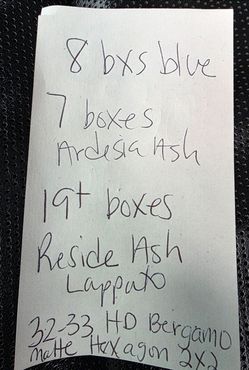 8 bxs blue
7 boxes
Ardesia Ash
19+ boxes
Reside Ash
Lappato
32-33 HD Bergamo
matte Hexagon 2x2